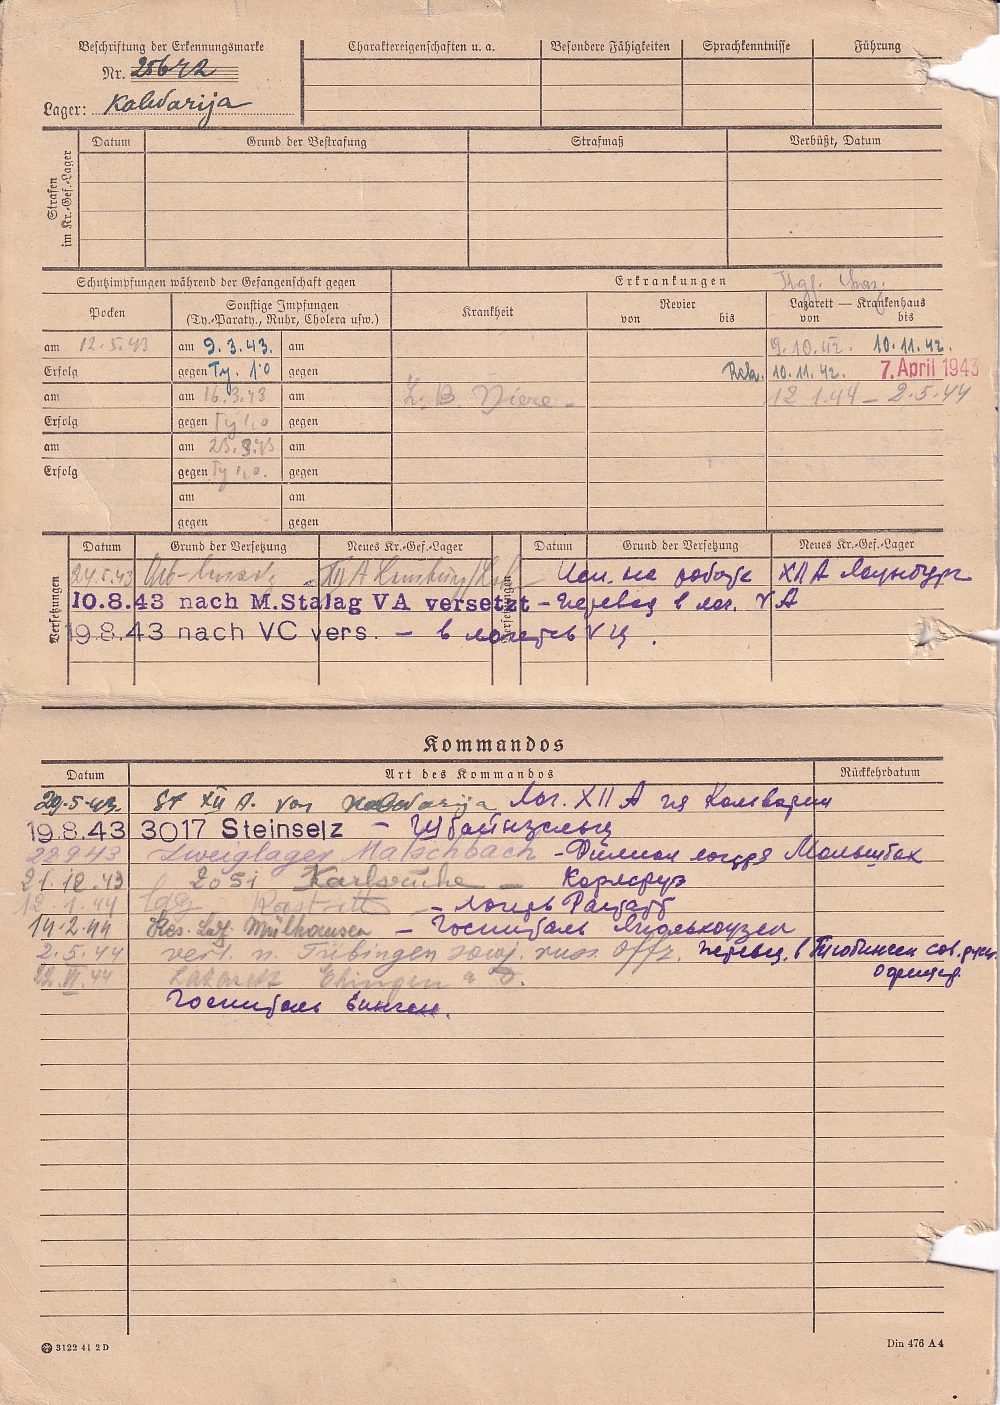 Beschriftung der Erkennungsmarke
Nr. 25642
Lager: Kalvarija
Charaktereigenschaften u. a.
Besondere Fähigkeiten
Sprachkenntnisse
Führung
Strafen im Kr.-Gef.-Lager
Datum
Grund der Bestrafung
Strafmaß
Verbüßt, Datum
Schutzimpfungen während der Gefangenschaft gegen
Erkrankungen
Pocken
Sonstige Impfungen
(Ty.-Paraty., Ruhr, Cholera usw.)
Krankheit
Revier
von bis
Lazarett — Krankenhaus
von bis
am 12.5.43 am 9.3.43. am 9.10.42. 10.11.42.
Erfolg gegen Ty. 1,0 gegen 10.11.42. 7. April 1943
am am 16.3.43 am Z. B. Niere - 12 1.44 - 2.5.44
Erfolg gegen Ty 1,0 gegen
am am 25.3.43 am
Erfolg gegen Ty 1,0. gegen
am am
gegen gegen
Versetzungen
Datum
Grund der Versetzung
Neues Kr.-Gef.-Lager
Versetzungen
Datum
Grund der Versetzung
Neues Kr.-Gef.-Lager
24.5.43 XII A Limburg/ - Исп. на работе XII А Лимбург
10.8.43 nach M.Stalag VA versetzt - Перевед в лаг. V А
19.8.43 nach VC vers. - в лагерь V Ц.
Kommandos
Datum
Art des Kommandos
Rückkehrdatum
29.5.43. St XII A. von Kalvarija Лаг. XII А из Калварии
19.8.43 3017 Steinselz - Штайнзельц
22.9.43 Zweiglager Malschbach - Филиал лагеря Мальшбах
21.12.43 2051 Karlsruhe - Карлсруэ
12.1.44 Rastatt - лагерь Раштатт
14.2.44 Res. Laz. Mülhausen - Госпиталь Мюлькаузен
2.5.44 vers. n. Tübingen sowj. russ. Offz. перевед. в Тюбинген сов. русс.
офицер
22.VI.44 Lazarett Ehingen a D.
Госпиталь Еинген.
3122 41 2 D
Din 476 A 4